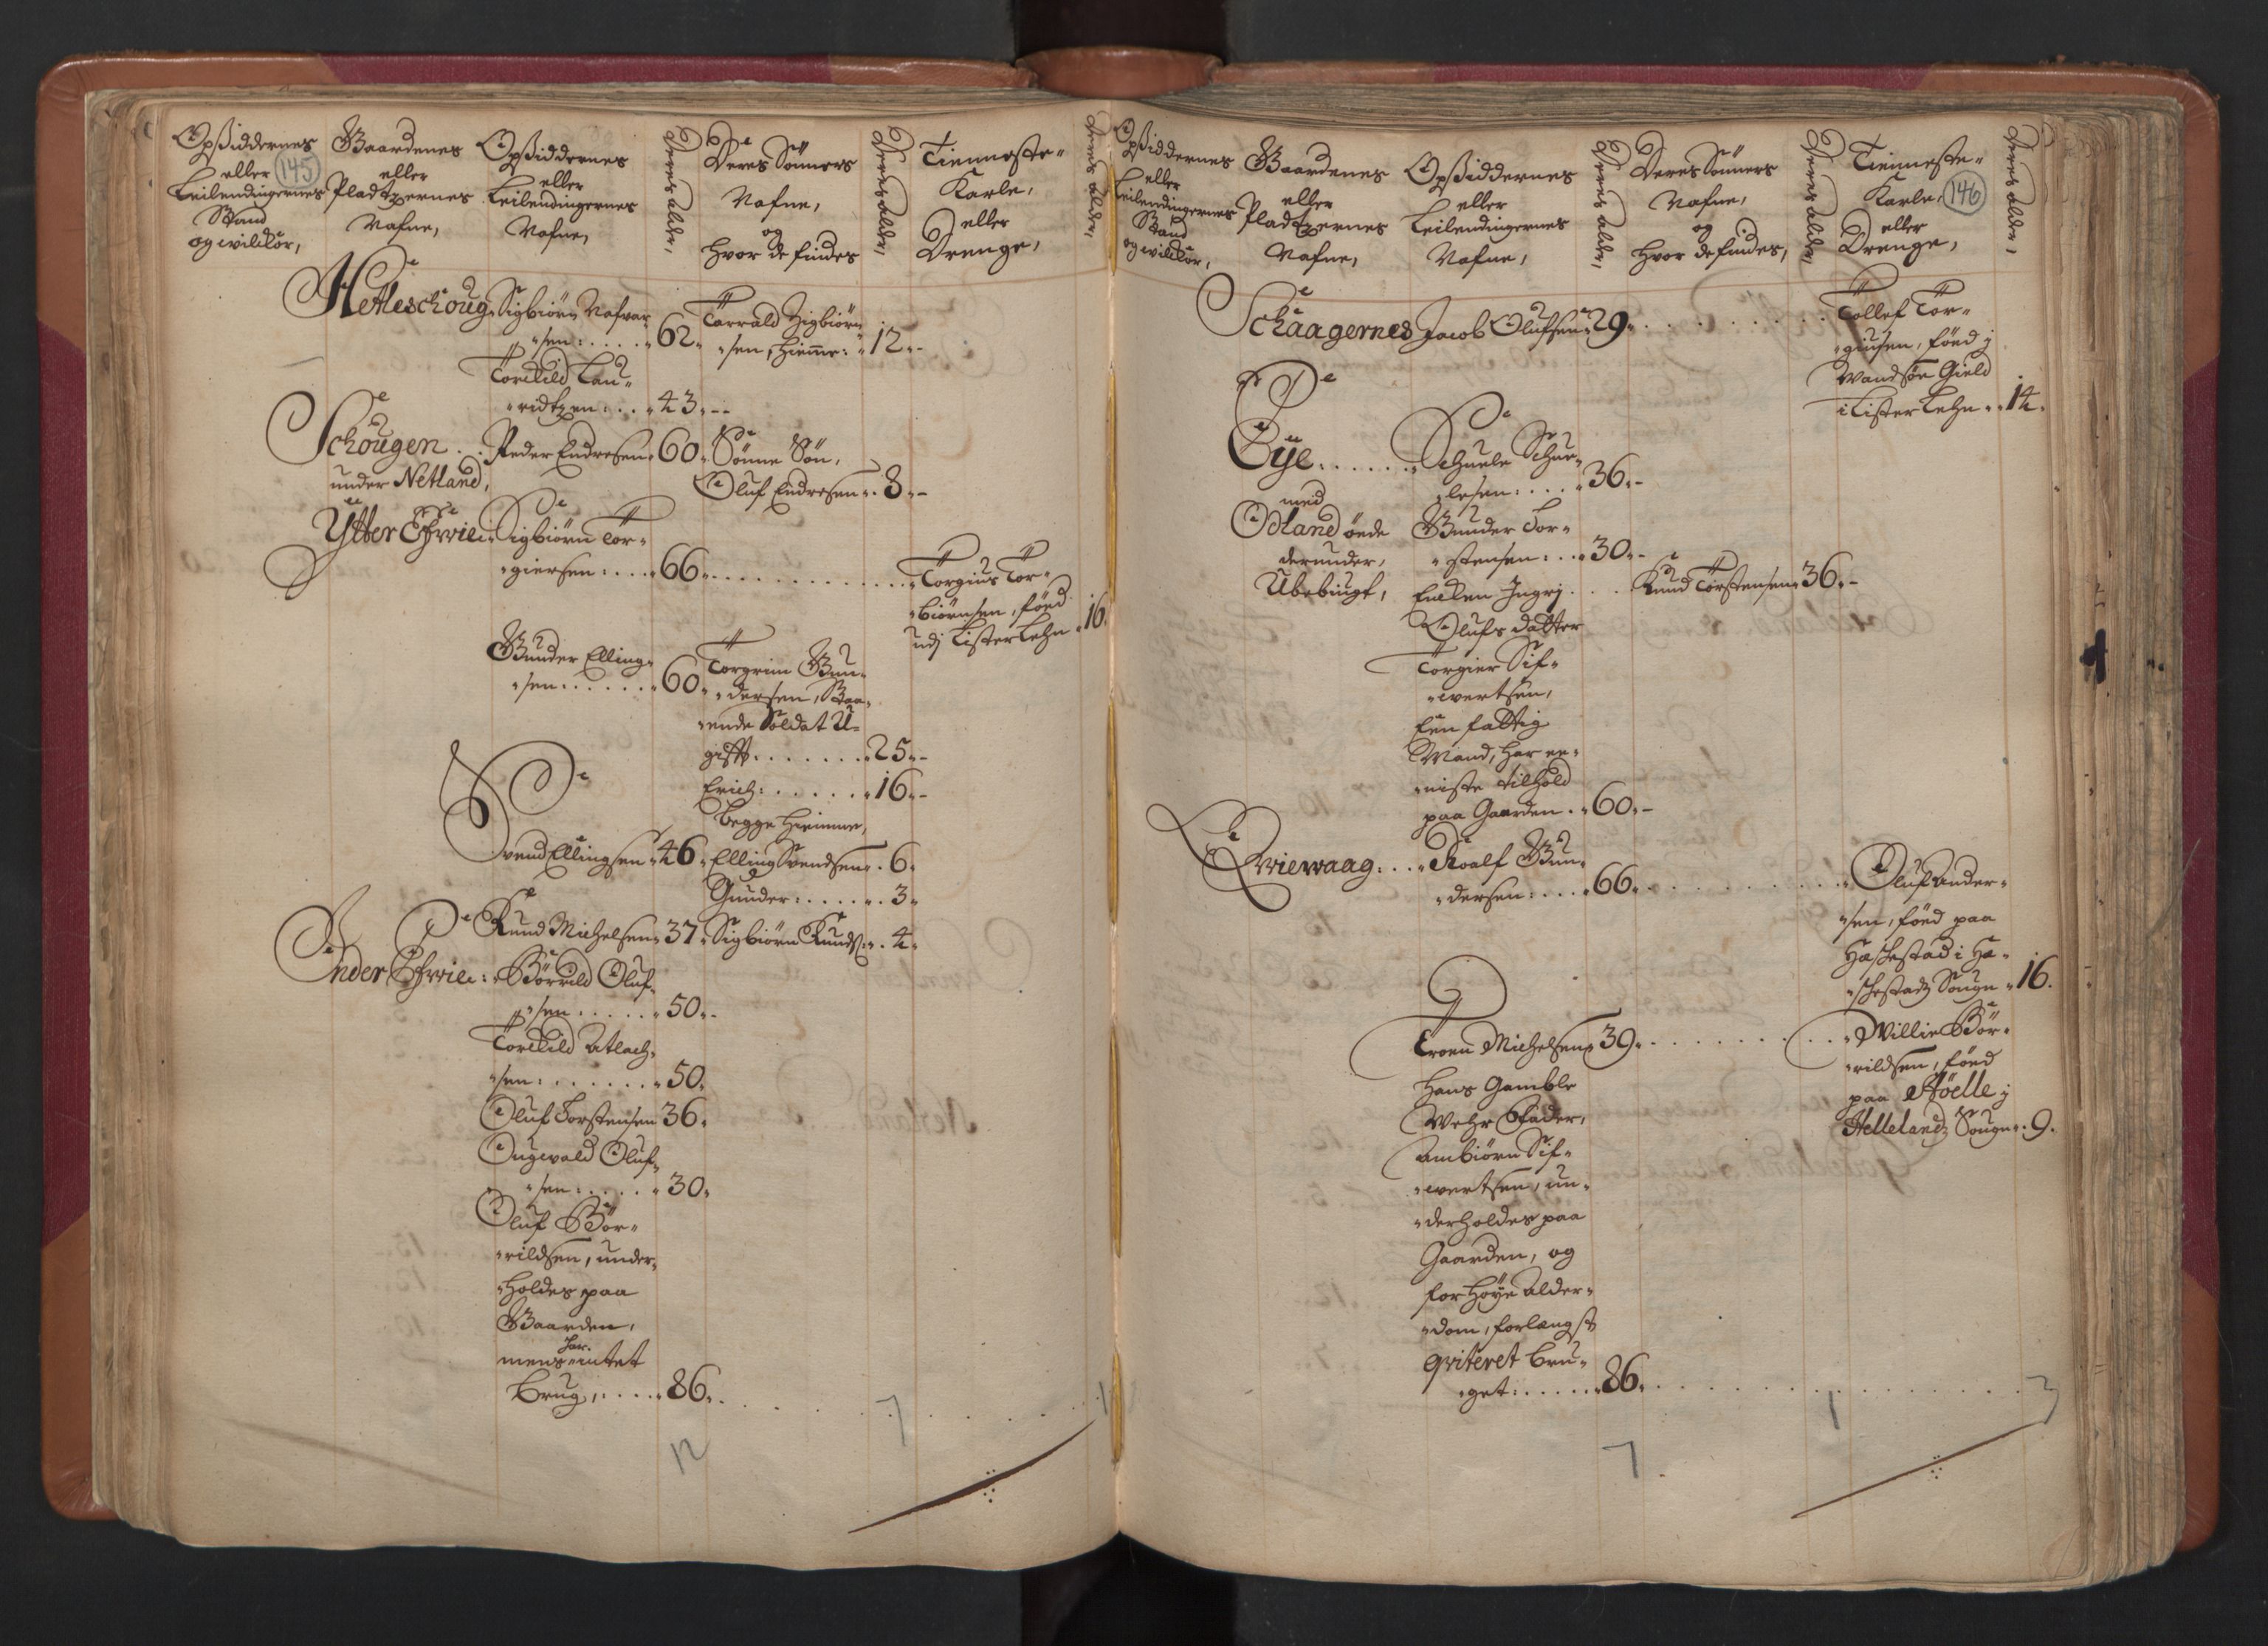 145
Opsiddernes
eller
Leilendingernes
Stand
og wilckor,
Gaardenes
eller
Pladtzernes
Nafne,
Opsiddernes
eller
Leilendingernes
Nafne,
Deres alder,
Deres Sönners
Nafne,
og
hvor de findes
Deres alder,
Tienneste-
Karle,
eller
Drenge,
Deres alder,
Hetleschoug Sigbiörn Nafvar-
sen: .... 62. Tarrald Zigbiörn
sen, hiemme: 12.
Torkild Lau-
ridtzen: ... 43.
Schougen .. Peder Endresen. 60. Sönne Sön,
under Netland, Oluf Endresen. 8.
Ytter Efwie: Sigbiörn Tor-
giersen: .... 66. Torgius Tor-
biörnsen, föed
udj Lister Lehn. 16.
Gunder Elling-
sen: ...... 60. Torgrim Gun-
dersen, Staa-
ende Soldat U-
gifft: ...... 25.
Erich: ...... 16.
begge hiemme,
Svend Ellingsen 46. Elling Svendsen. 6.
Gunder: ..... 3.
Knud Michelsen 37. Sigbiörn Knuds: 4.
Inder Efwie: Börrild Oluf-
sen: ..... 50.
Torkild Atlach-
sen: ...... 50.
Oluf Torstensen 36.
Ougwald Oluf-
sen: .... 30.
Oluf Bör-
rildsen, under-
holdes paa
Gaarden,
mens har intet
brug, .... 86.
7
1
12
146
Opsiddernes
eller
Leilendingernes
Stand
og wilckor,
Gaardenes
eller
Pladtzernes
Nafne,
Opsiddernes
eller
Leilendingernes
Nafne,
Deres alder,
Deres Sönners
Nafne,
og
hvor de findes,
Deres alder,
Tienneste-
Karle,
eller
Drenge,
Deres alder,
Schaagernes Jacob Olufsen 29. Tollef Tor-
giusen, föed j
Wandsöe Gield
i Lister Lehn. 14.
Öÿe ...... Schuele Schue-
lesen: .... 36.
med
Odland öede
derunder,
Ubebugt,
Gunder Tor-
stensen: ... 30.
Encken Ingrj .... Knud Torstensen 36.
Olufs datter
Torgier Sif-
wertsen,
Een fattig
Mand, har ee-
niste tilhold
paa Gaarden. 60.
Ewiewaag: ... Roalf Gun-
dersen: .... 66. Oluf Ander-
sen, föed paa
Haschestad i Ha-
schestadz Sougn. 16.
Troen Michelsen 39. Willie Bör-
rildsen, föed
paa Höelle j
Hellelandz Sougn. 9.
Hans Gamble
Wehr Fader,
Ambiörn Sif-
wertsen, un-
derholdes paa
Gaarden, og
for höÿe alder-
dom, forlengst
qviteret bru-
get: ...... 86.
1
7